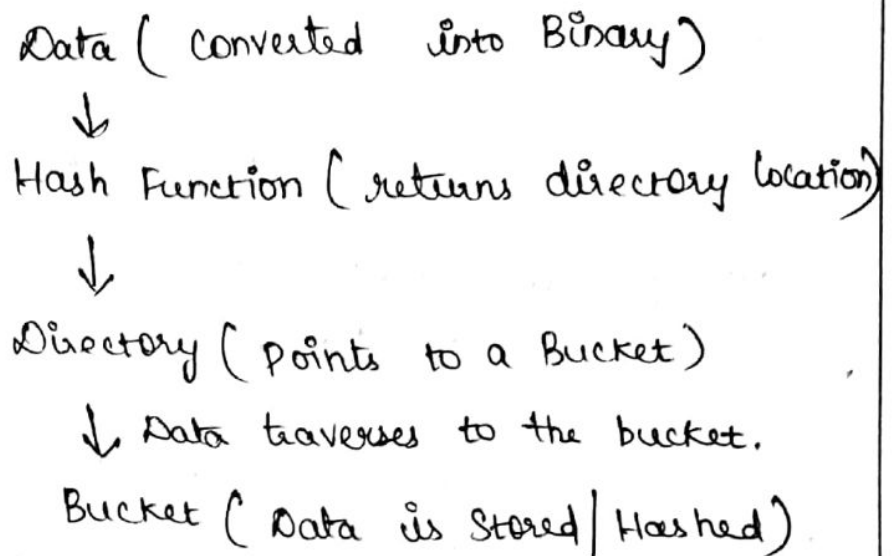 Data ( converted into Binary)
↓
Hash Function ( returns directory location)
↓
Directory ( Points to a Bucket)
↓ Data traverses to the bucket.
Bucket ( Data is Stored | Hashed)